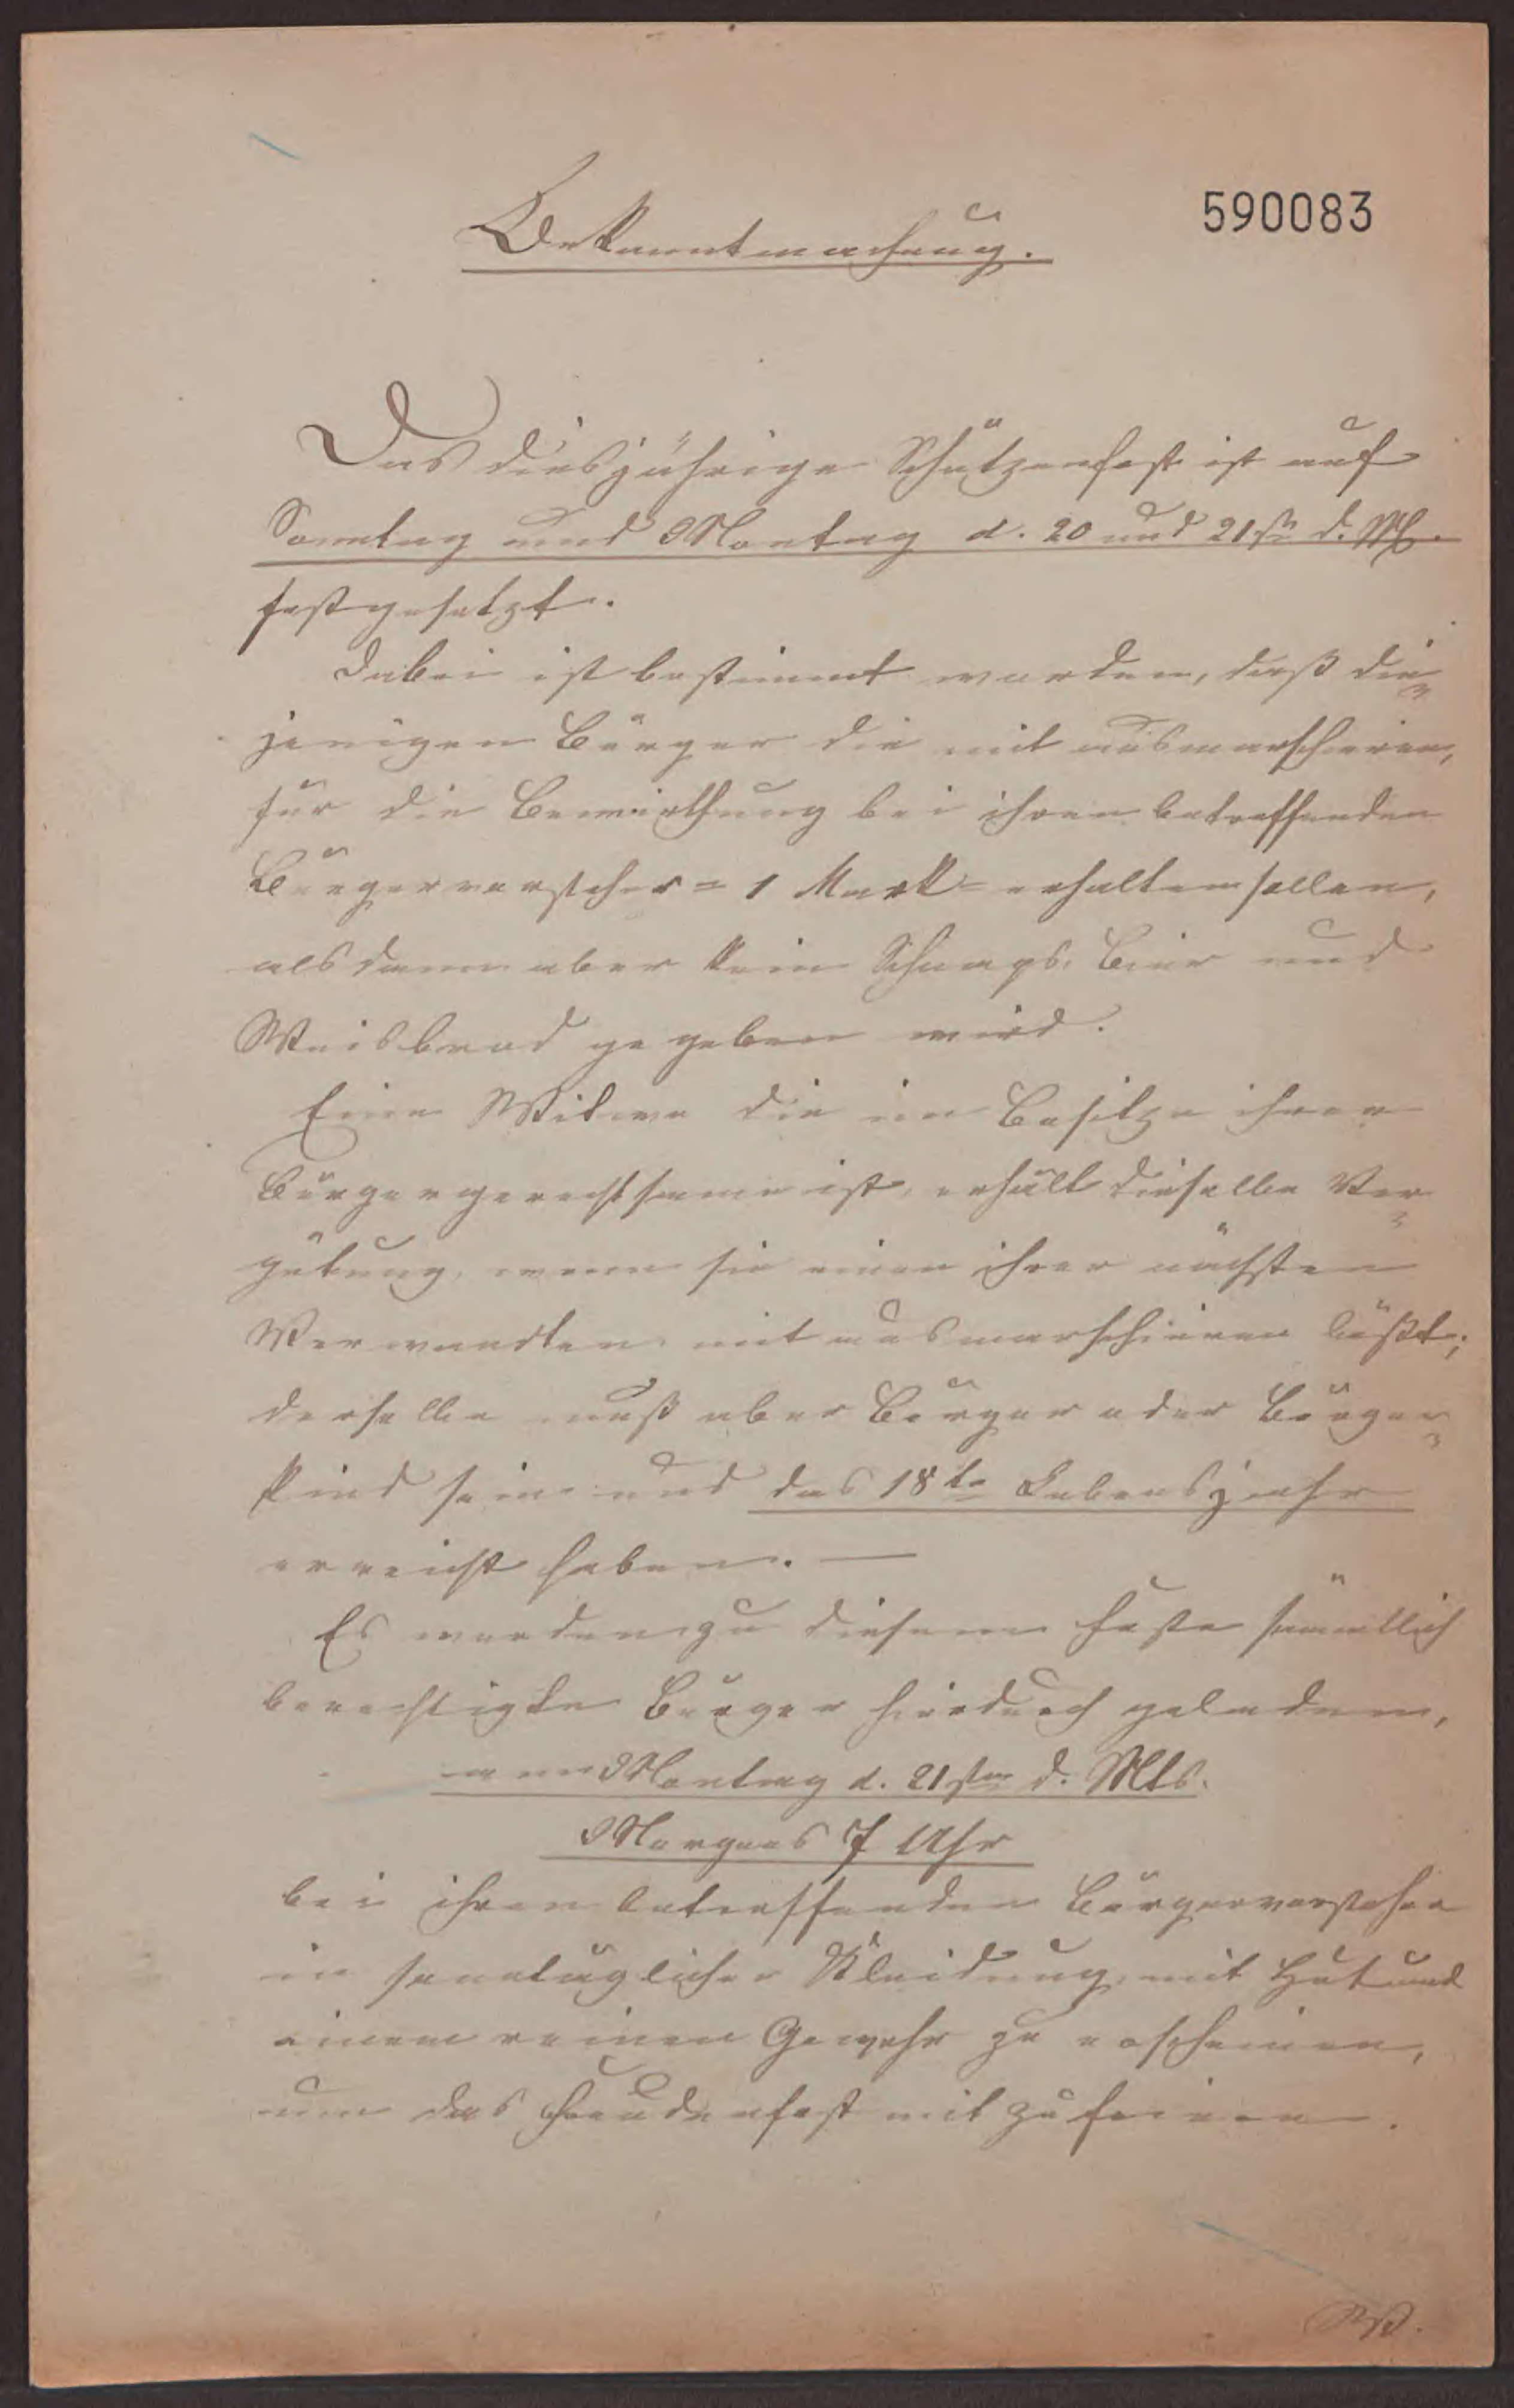 590083
Bekanntmachung.
Das diesjährige Schützenfest ist auf
Sonntag und Montag d. 20 und 21st d. Mts.
festgesetzt.
Dabei ist bestimmt worden, daß die-
jenigen Bürger die mit ausmarschieren,
für die Bewirthung bei ihren betreffenden
Bürgervorsteher = 1 Mark = erhalten sollen,
alsdann aber kein Schnaps, Bier und
Weisbrod gegeben wird.
Eine Witwe die im Besitze ihrer
Bürgergerechtsame ist, erhält dieselbe Ver-
gütung, wenn sie einen ihrer nächsten
Verwandten mit ausmarschieren läßt;
derselbe muß aber Bürger oder Bürger-
kind sein und das 18te Lebensjahr
erreicht haben. —
Es werden zu diesem Feste sämmtlich
berechtigte Bürger hierdurch geladen,
am Montag d. 21sten d. Mts.
Morgens 7 Uhr
bei ihren betreffenden Bürgervorsteher
in sonntäglicher Kleidung, mit Hut und
einem reinen Gewehr zu erscheinen,
um das Freudenfest mit zu feiern.